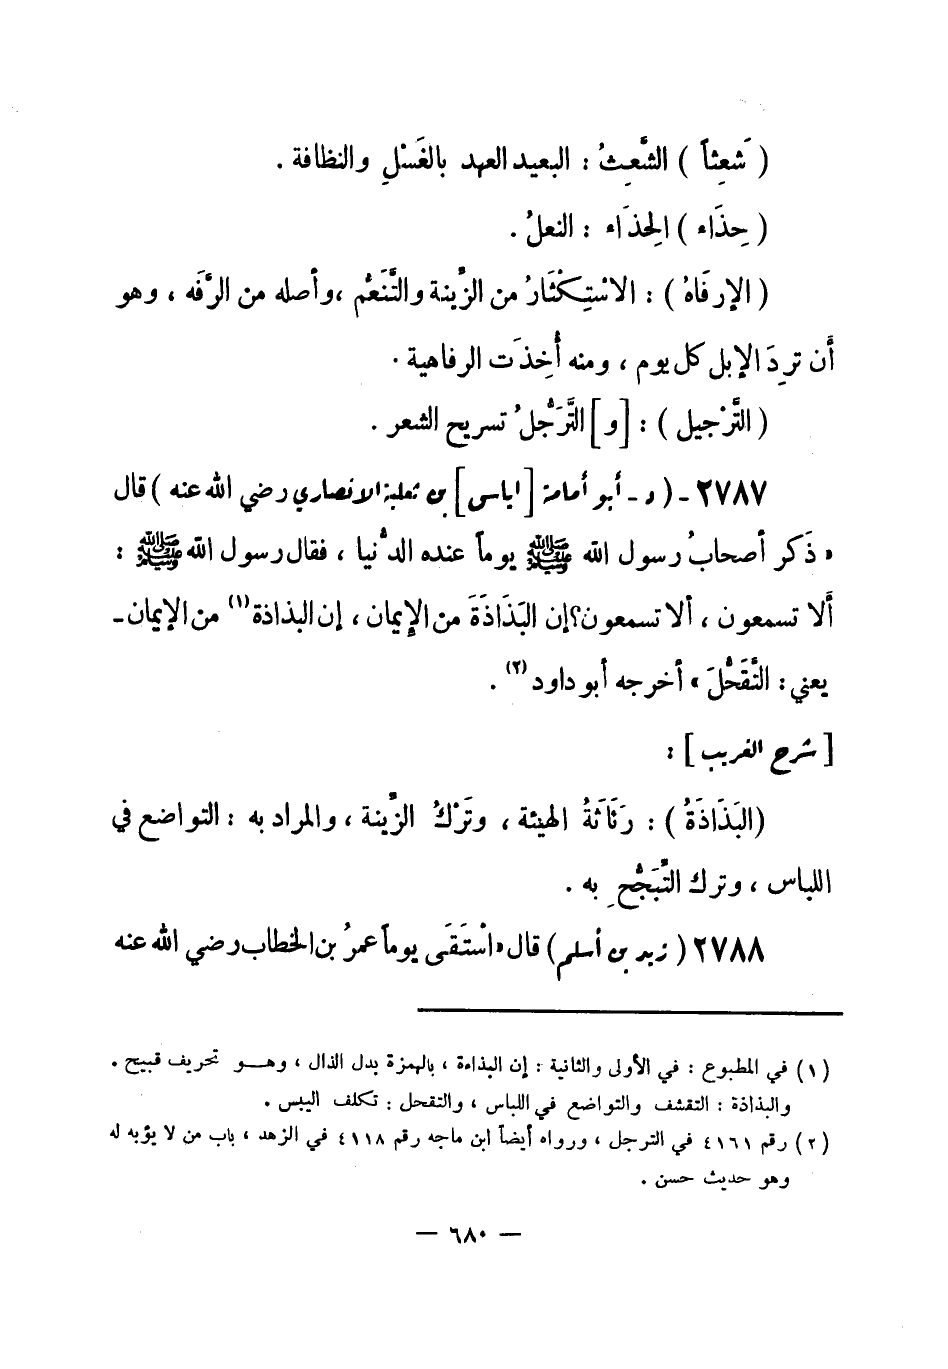 ( شَعِثاً ) الشَّعِثُ : البعيد العهد بالغَسْلِ والنظافة .
( حِذَاء ) الحِذَاء : النعلُ .
( الإرفَاهُ ) : الاسْتِكْثَارُ من الزِّينة والتَّنَعُّم ،وأصله من الرَّفَه ، وهو
أَن تردَ الإبل كل يوم ، ومنه أُخِذَت الرفاهية .
( التَّرْجيل ) : [و] التَّرَجُّلُ تسريح الشعر .
٢٧٨٧ - ( د - أبو أمامة [اياس] بن ثعلبة الانصاري رضي الله عنه ) قال
« ذَكر أصحابُ رسول الله ﷺ يوماً عنده الدُّنيا ، فقال رسول الله ﷺ :
ألا تسمعون ، ألا تسمعون؟ إن البَذَاذَةَ من الإيمان ، إن البذاذة (١) من الإيمان -
يعني : التَّقَحُّلَ » أخرجه أبو داود (٢) .
[ شرح الغريب ] :
(البَذَاذَةُ ) : رَثَاثَةُ الهيئة ، وتَرْكُ الزِّينة ، والمراد به : التواضع في
اللباس ، وترك التَّبَجُّحِ به .
٢٧٨٨ ( زيد بن أسلم ) قال « اسْتَسْقَى يوماً عمرُ بن الخطاب رضي الله عنه
(١) في المطبوع : في الأولى والثانية : إن البذاءة ، بالهمزة بدل الذال ، وهــو تحريف قبيح .
والبذاذة : التقشف والتواضع في اللباس ، والتقحل : تكلف اليبس .
(٢) رقم ٤١٦١ في الترجل ، ورواه أيضاً ابن ماجه رقم ٤١١٨ في الزهد ، باب من لا يؤبه له
وهو حديث حسن .
— ٦٨٠ —